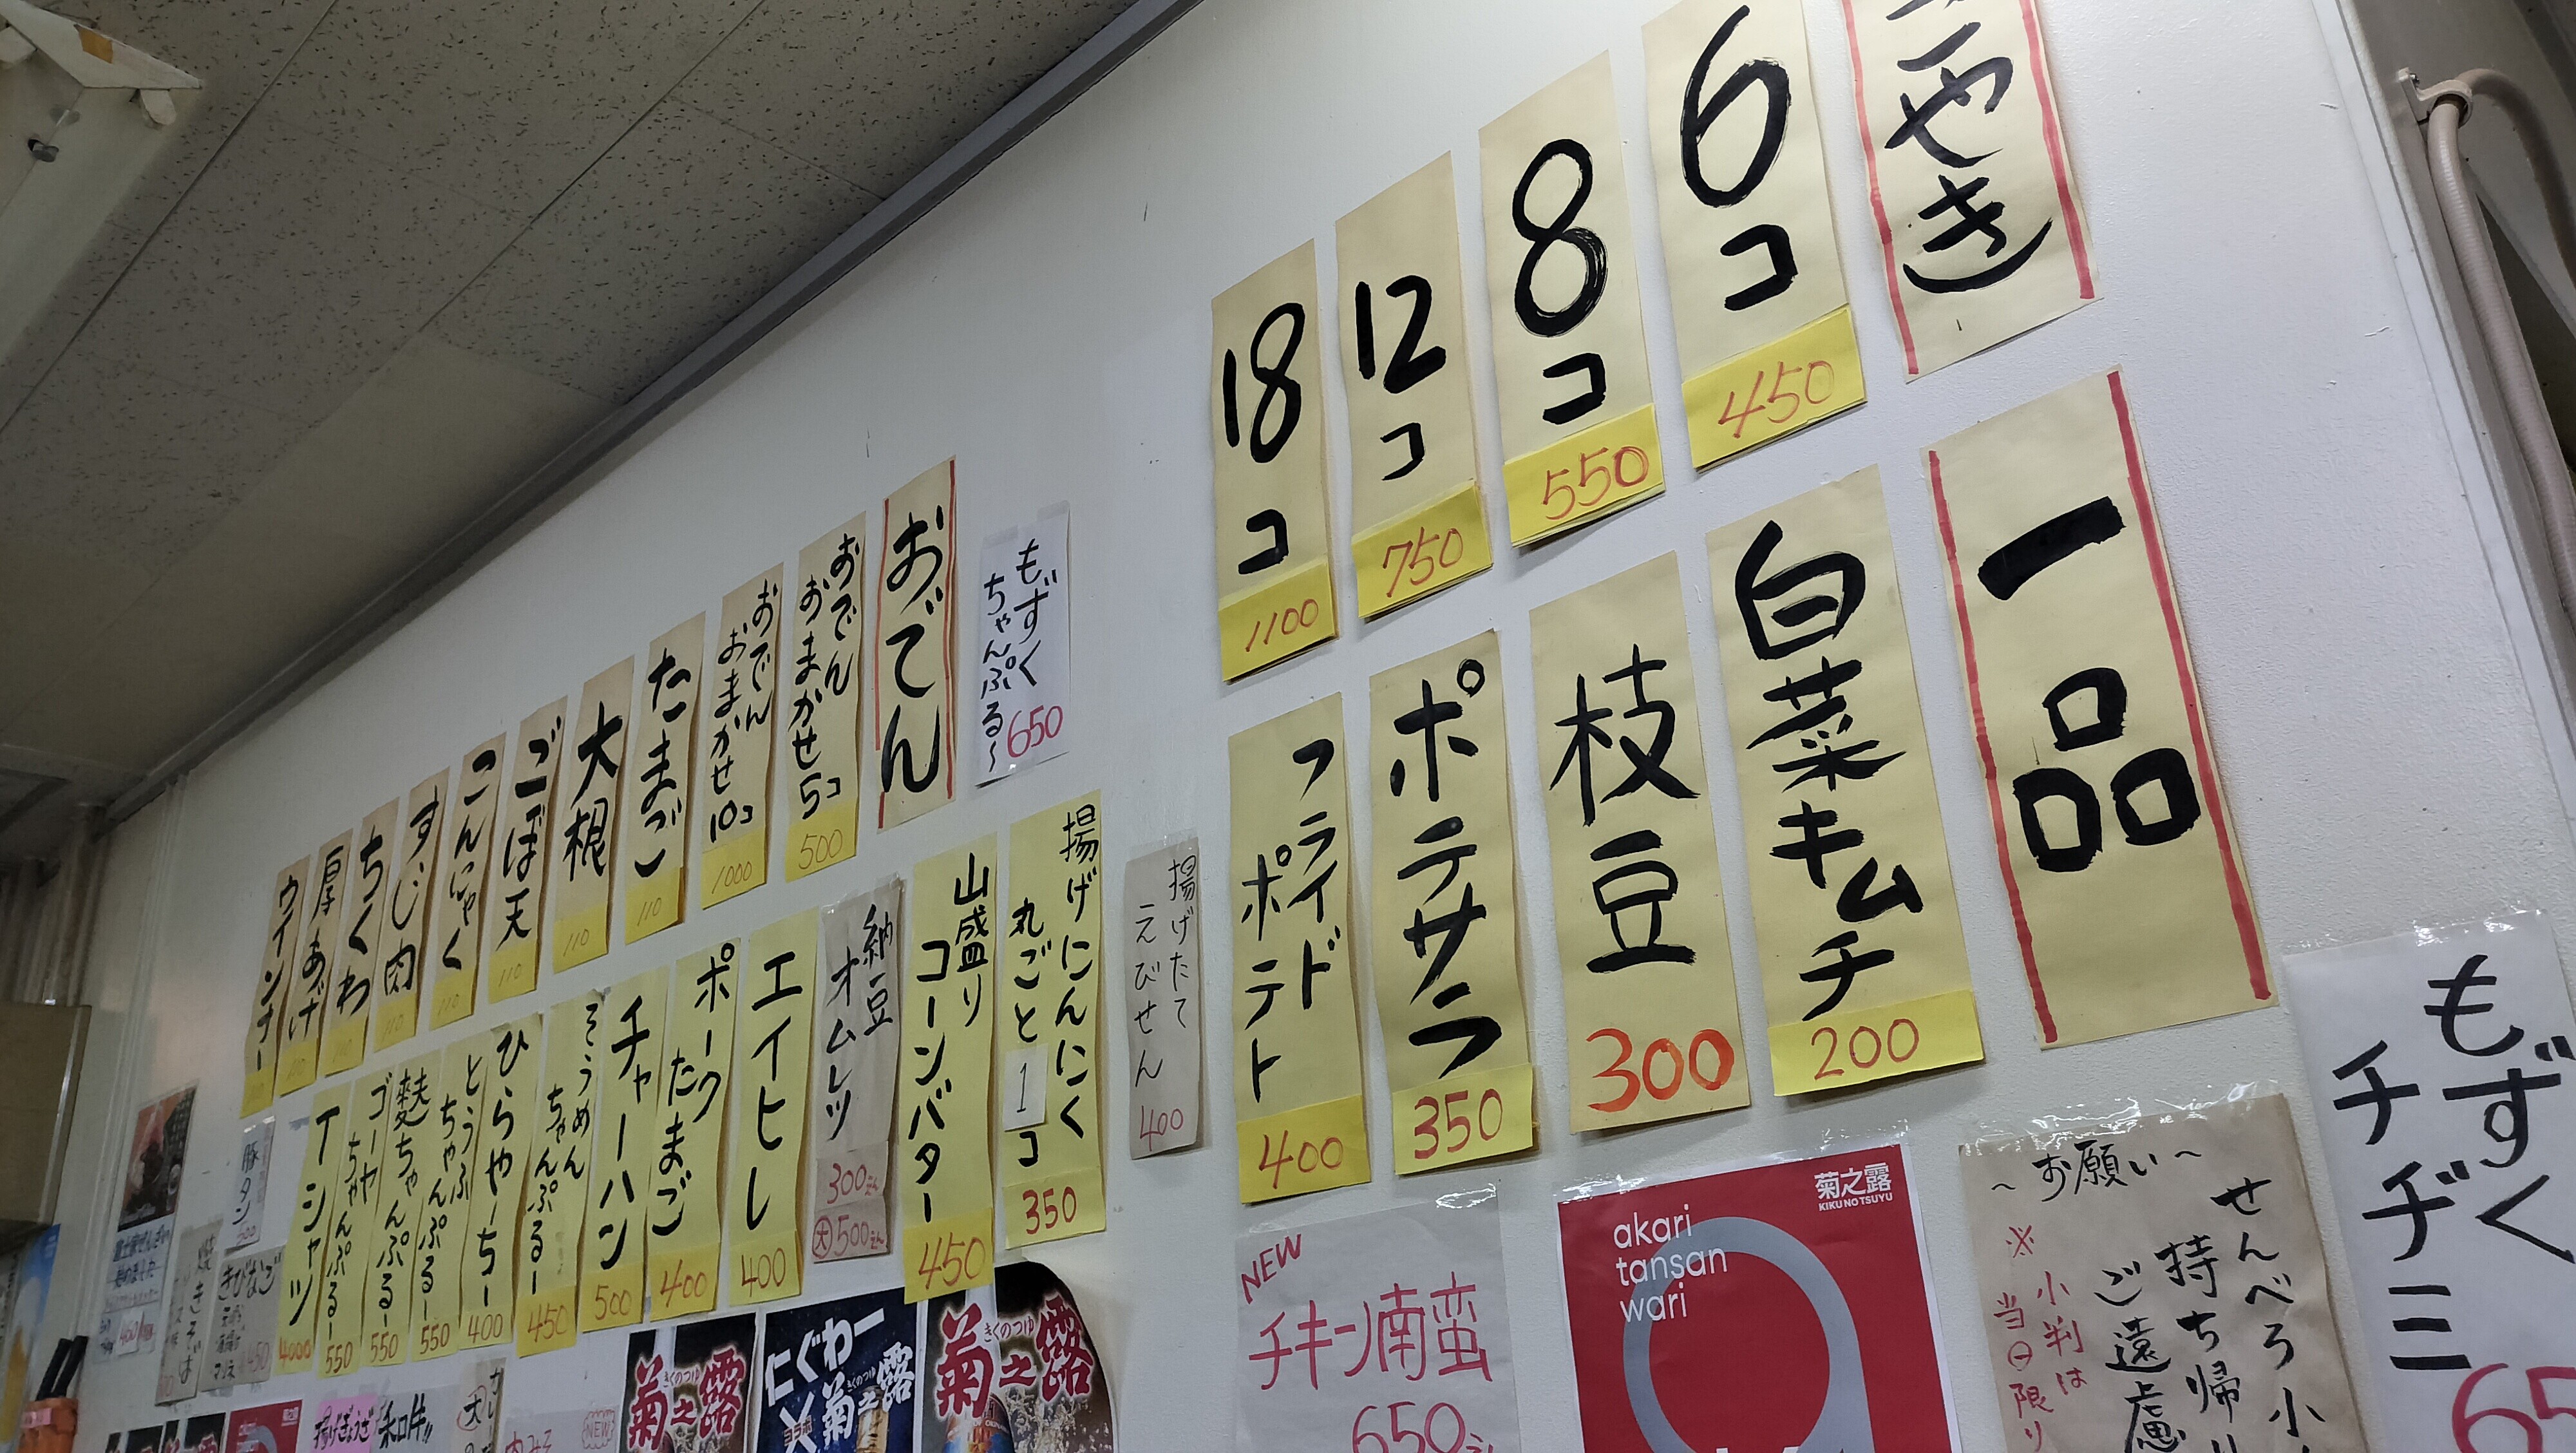 やき
6コ
450
8コ
550
12コ
750
18コ
1100
一品
白菜キムチ
200
枝豆
300
ポテサラ
350
フライド
ポテト
400
揚げたて
えびせん
400
もずく
ちゃんぷる〜
650
おでん
おでん
おまかせ5コ
500
おでん
おまかせ10コ
1000
たまご
110
大根
110
ごぼ天
110
こんにゃく
110
すじ肉
110
ちくわ
厚あげ
ウインナー
揚げにんにく
丸ごと1コ
350
山盛り
コーンバター
450
納豆
オムレツ
300えん
大500えん
エイヒレ
400
ポーク
たまご
400
チャーハン
500
そうめん
ちゃんぷるー
450
ひらやーちー
400
とうふ
ちゃんぷるー
550
麩ちゃんぷるー
550
ゴーヤ
ちゃんぷるー
550
Tシャツ
4000
豚タン
きびなご
焼きそば
もずく
チヂミ
65
〜お願い〜
せんべろ小
持ち帰り
ご遠慮
※小判は
当日限り
akari
tansan
wari
菊之露
KIKU NO TSUYU
NEW
チキン南蛮
650
きくのつゆ
菊之露
仁ぐわー
×
コラボ
きくのつゆ
菊之露
きくのつゆ
菊之露
揚げぎょうざ
NEW